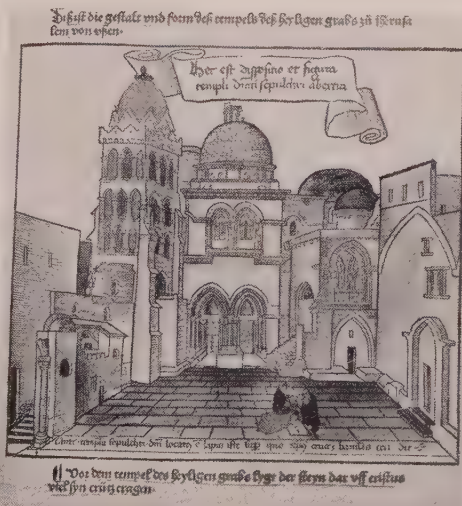 Diß ist die gestalt vnd form deß tempels deß heyligen grabs zů iherusa
lem von vßen.
Hec est dispositio et figura
templi dñici sepulchri ab extra
Ante templū sepulchri dñi locatꝰ ē lapis iste sup quo
Vor dem tempel des heyligen grabs lygt der steyn dar vff cristus
viel syn crütz tragen.